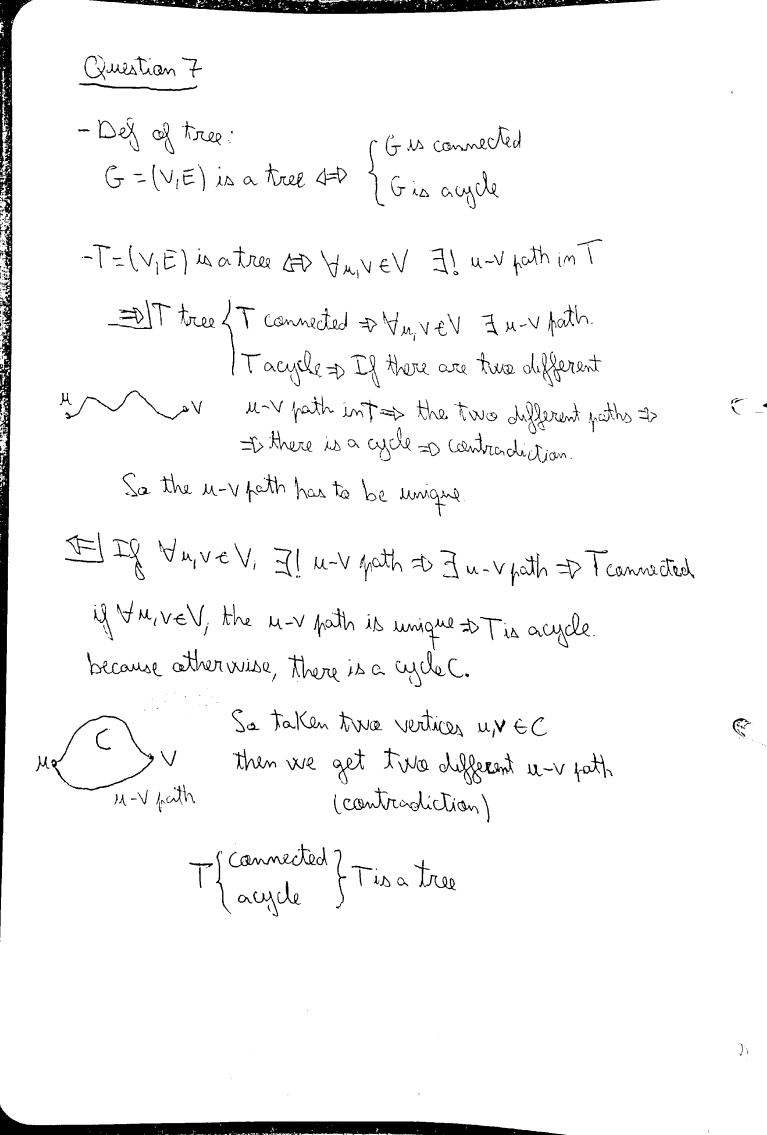 Question 7
- Def of tree:
G = (V, E) is a tree ⇔ { G is connected
G is acycle
- T = (V, E) is a tree ⇔ ∀u, v ∈ V ∃! u-v path in T
⇒| T tree { T connected ⇒ ∀u, v ∈ V ∃ u-v path.
T acycle ⇒ If there are two different
u v u-v path in T ⇒ the two different paths ⇒
⇒ there is a cycle ⇒ contradiction.
So the u-v path has to be unique
⇐| If ∀u, v ∈ V, ∃! u-v path ⇒ ∃ u-v path ⇒ T connected
if ∀u, v ∈ V, the u-v path is unique ⇒ T is acycle.
because otherwise, there is a cycle C.
So taken two vertices u, v ∈ C
u C v then we get two different u-v path
u-v path (contradiction)
T { connected
acycle } T is a tree